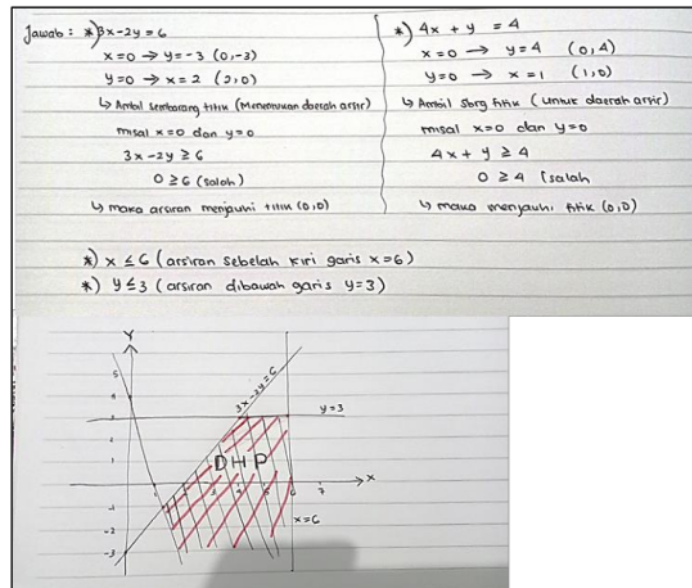 Jawab : *) 3x-2y=6
x=0 → y=-3 (0,-3)
y=0 → x=2 (2,0)
↳ Ambil sembarang titik (Menentukan daerah arsir)
misal x=0 dan y=0
3x-2y ≥ 6
0 ≥ 6 (salah)
↳ maka arsiran menjauhi titik (0,0)
*) 4x + y = 4
x=0 → y=4 (0,4)
y=0 → x=1 (1,0)
↳ Ambil sbrg titik (untuk daerah arsir)
misal x=0 dan y=0
4x + y ≥ 4
0 ≥ 4 (salah
↳ maka menjauhi titik (0,0)
*) x ≤ 6 (arsiran sebelah kiri garis x=6)
*) y ≤ 3 (arsiran dibawah garis y=3)
Y
5
4
3x-2y=6
3
y=3
2
1
DHP
1
3
4
5
6
7
X
-1
-2
x=6
-3